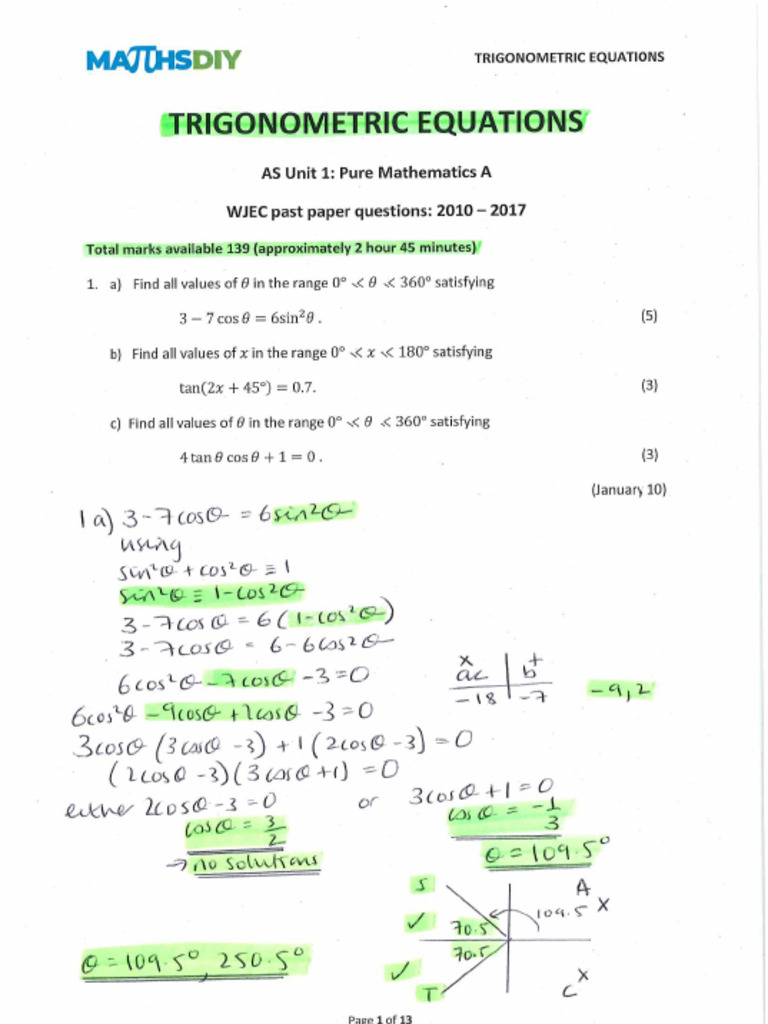 MATHSDIY
TRIGONOMETRIC EQUATIONS
TRIGONOMETRIC EQUATIONS
AS Unit 1: Pure Mathematics A
WJEC past paper questions: 2010 – 2017
Total marks available 139 (approximately 2 hour 45 minutes)
1. a) Find all values of θ in the range 0° ≤ θ ≤ 360° satisfying
3 − 7 cos θ = 6sin²θ . (5)
b) Find all values of x in the range 0° ≤ x ≤ 180° satisfying
tan(2x + 45°) = 0.7. (3)
c) Find all values of θ in the range 0° ≤ θ ≤ 360° satisfying
4 tan θ cos θ + 1 = 0 . (3)
(January 10)
1a) 3-7cosθ = 6sin²θ
using
sin²θ + cos²θ ≡ 1
sin²θ ≡ 1-cos²θ
3-7cosθ = 6(1-cos²θ)
3-7cosθ = 6-6cos²θ
6cos²θ -7cosθ -3=0
x | +
ac | b
-18 | -7
-9,2
6cos²θ -9cosθ +2cosθ -3=0
3cosθ(3cosθ -3)+1(2cosθ-3)=0
(2cosθ-3)(3cosθ+1)=0
either 2cosθ-3=0 or 3cosθ+1=0
cosθ = 3/2
cosθ = -1/3
→ no solutions
θ=109.5°
S A
109.5 x
✓ 70.5
70.5
✓ x
T C
θ=109.5°, 250.5°
Page 1 of 13